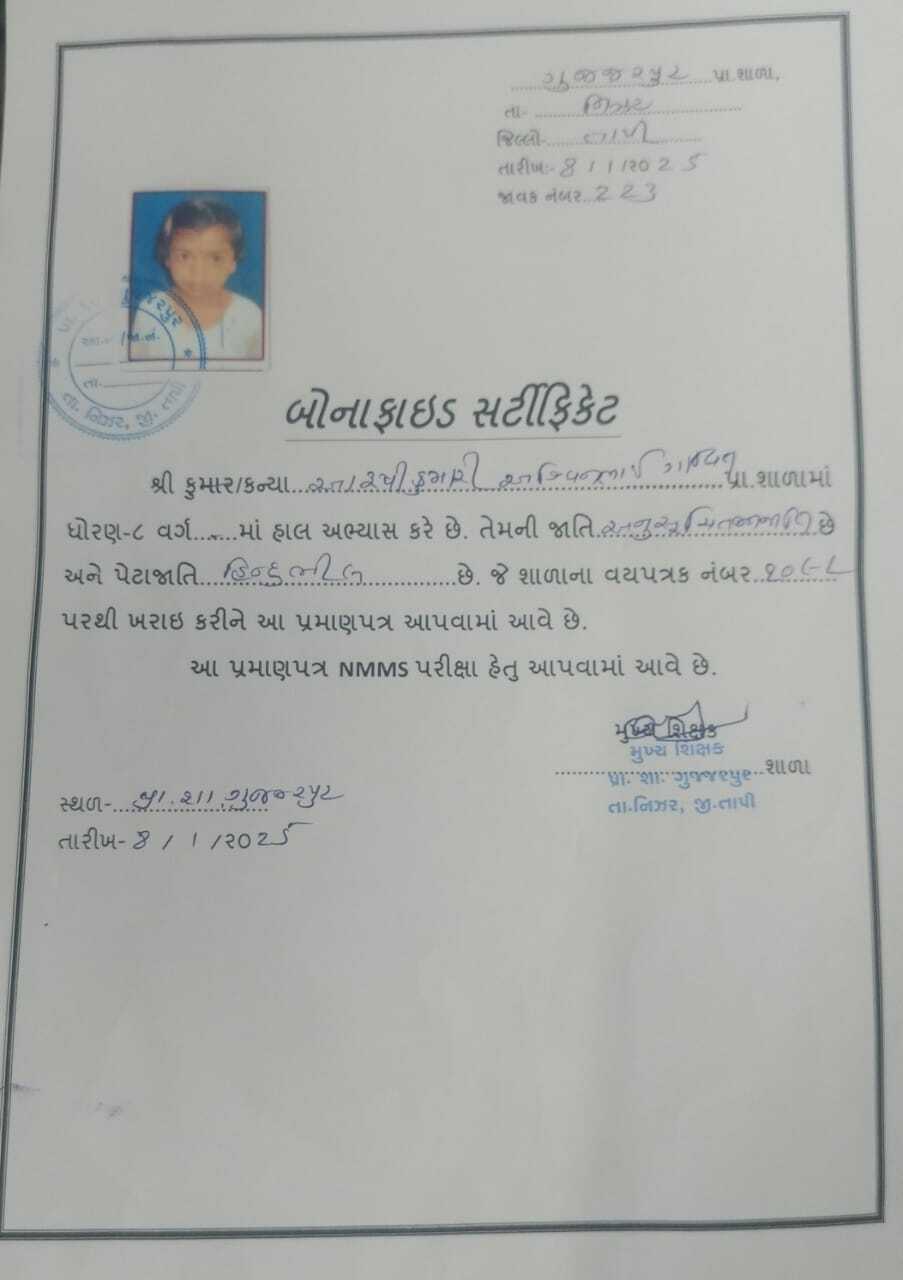 ગુજ્જરપુર પ્રા.શાળા,
તા- નિઝર
જિલ્લો- તાપી
તારીખ:- 8/1/2025
જાવક નંબર...223
ગુજ્જરપુર
તા.
તા. નિઝર, જી. તાપી
બોનાફાઇડ સર્ટીફિકેટ
શ્રી કુમાર/કન્યા... પ્રા.શાળામાં
ધોરણ-૮ વર્ગ......માં હાલ અભ્યાસ કરે છે. તેમની જાતિ.અનુસૂચિતજનજાતિ છે
અને પેટાજાતિ...હિન્દુ ભીલ............છે. જે શાળાના વયપત્રક નંબર
પરથી ખરાઇ કરીને આ પ્રમાણપત્ર આપવામાં આવે છે.
આ પ્રમાણપત્ર NMMS પરીક્ષા હેતુ આપવામાં આવે છે.
મુખ્ય શિક્ષક
મુખ્ય શિક્ષક
પ્રા. શા. ગુજ્જરપુર શાળા
તા.નિઝર, જી.તાપી
સ્થળ-...પ્રા.શા.ગુજ્જરપુર
તારીખ- 8/1/2025